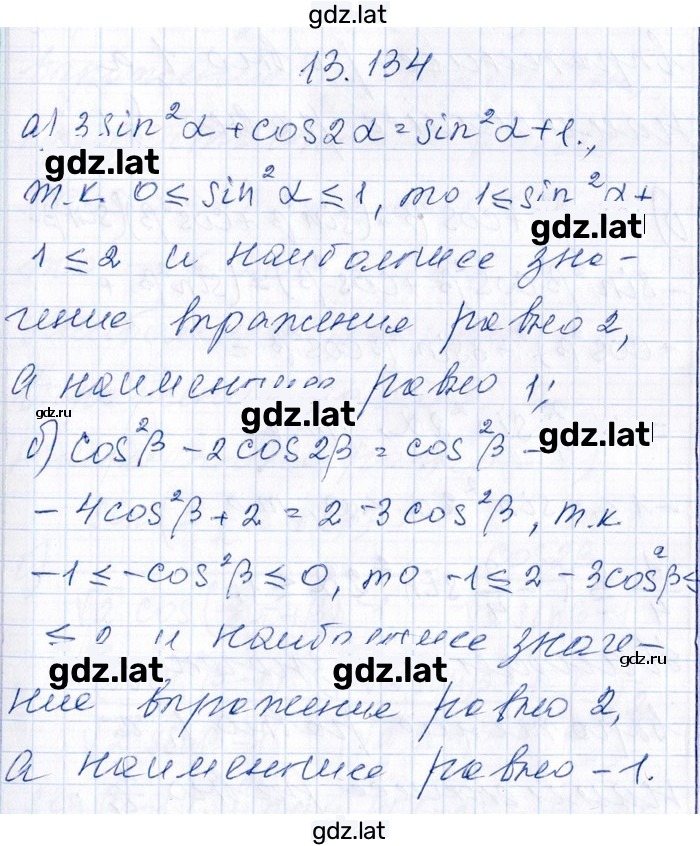 gdz.lat
13.134
а) 3sin²α + cos2α = sin²α + 1.,
gdz.lat
т.к. 0 ≤ sin²α ≤ 1, то 1 ≤ sin²α +
gdz.lat
1 ≤ 2 и наибольшее зна-
чение выражения равно 2,
а наименьшее равно 1;
gdz.ru gdz.lat gdz.lat
б) cos²β - 2cos2β = cos²β -
- 4cos²β + 2 = 2 - 3cos²β, т.к
-1 ≤ -cos²β ≤ 0, то -1 ≤ 2 - 3cos²β ≤
≤ 2 и наибольшее значе-
gdz.lat gdz.lat gdz.ru
ние выражение равно 2,
а наименьшее равно -1.
gdz.lat